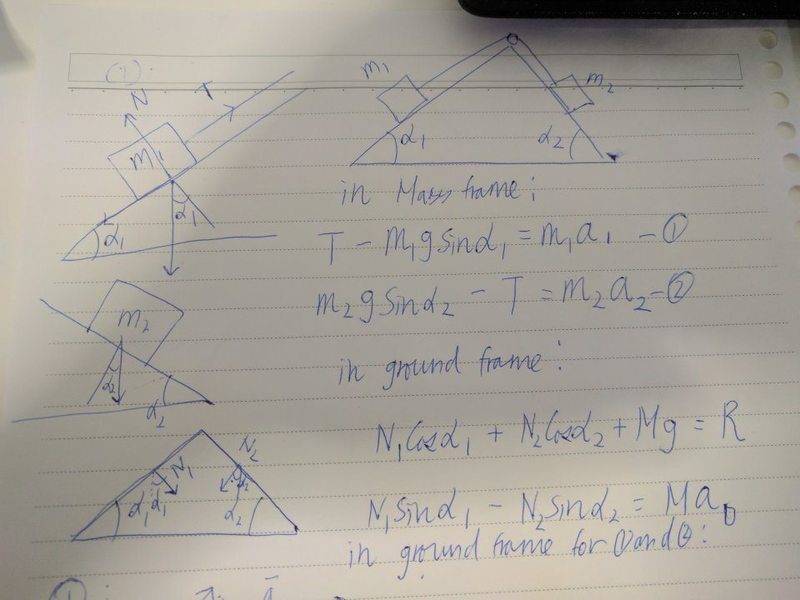 (1).
N
T
m₁
α₁
α₁
m₁
m₂
α₁
α₂
in Mass frame:
T - m₁g sinα₁ = m₁a₁ - ①
m₂g sinα₂ - T = m₂a₂ - ②
m₂
α₂
α₂
in ground frame:
N₁cosα₁ + N₂cosα₂ + Mg = R
N₁
N₂
α₁
α₁
α₂
α₂
N₁sinα₁ - N₂sinα₂ = Ma₀
in ground frame for ① and ②: